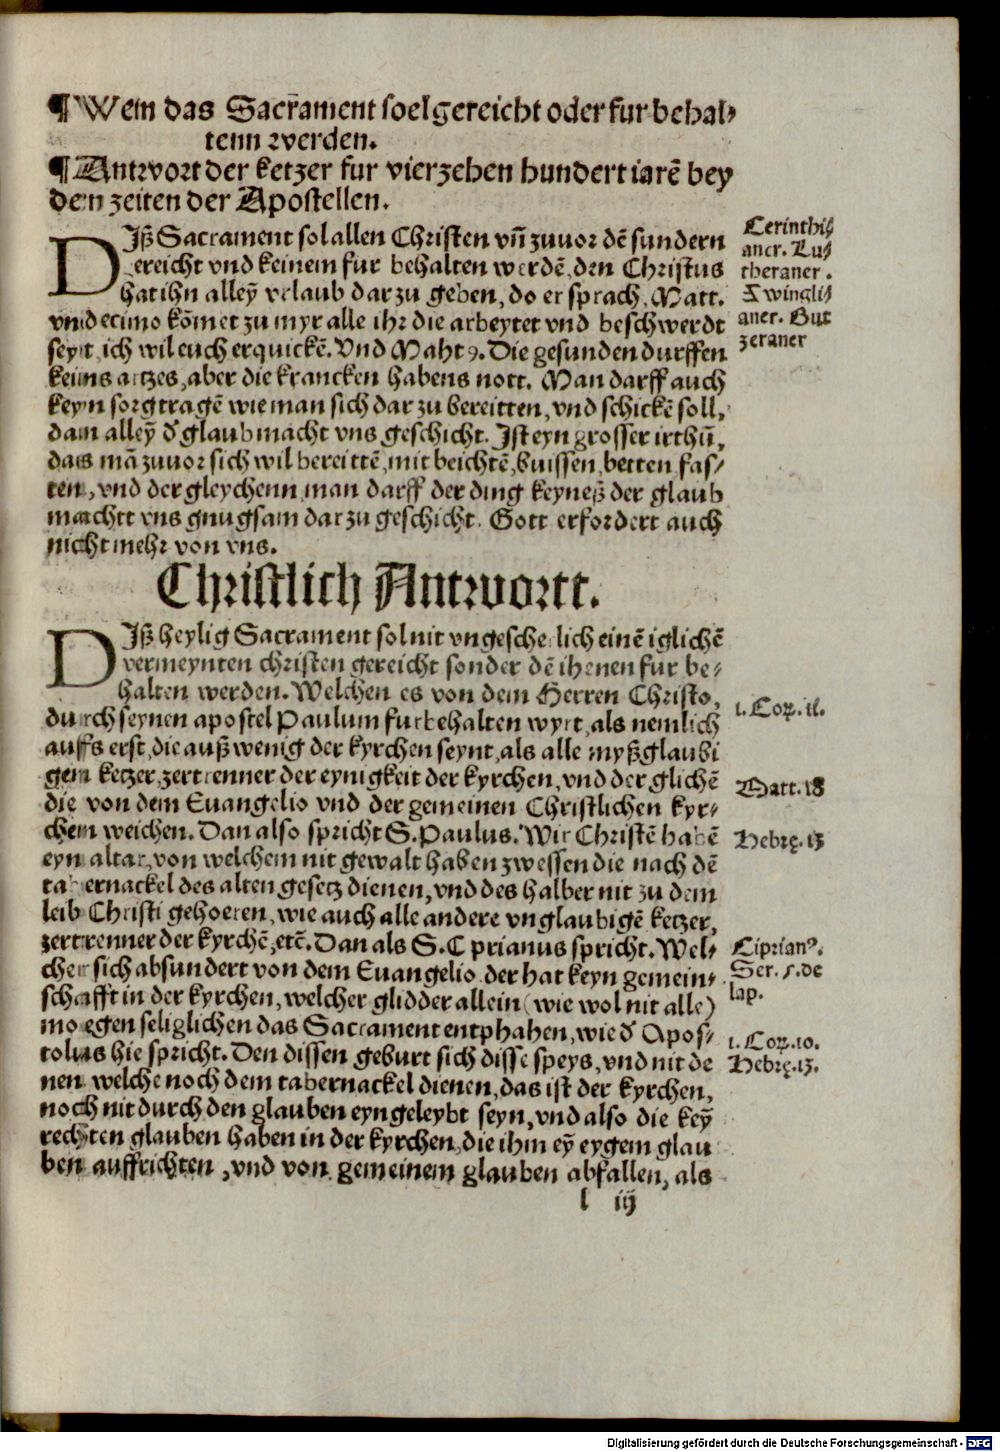 ¶ Wem das Sacrament soel gereicht oder fur behal⸗
tenn werden.
¶ Antwort der ketzer fur vierzehen hundert iarē bey
den zeiten der Apostellen.
DIß Sacrament sol allen Christen vñ zuvor dē sundern
gereicht vnd keinem fur behalten werdē, den Christus
hat ihn alleȳ vrlaub dar zu geben, do er sprach. Matt.
vndecimo kōmet zu myr alle ihr die arbeytet vnd beschwerdt
seyt, ich wil euch erquickē. Vnd Maht 9. Die gesunden durffen
keins artzes, aber die krancken habens nott. Man darff auch
keyn sorg tragē wie man sich dar zu bereitten, vnd schickē soll,
dan alleȳ d̓ glaub macht vns geschicht. Ist eyn grosser irthū,
das mā zuvor sich wil bereittē, mit beichtē, buissen, betten fas⸗
ten, vnd der gleychenn, man darff der ding keyneß der glaub
machtt vns gnugsam dar zu geschicht. Gott erfordert auch
nicht mehr von vns.
Christlich Antwortt.
DIß heylig Sacrament sol nit vngeschei lich einē iglichē
vermeynten christen gereicht sonder dē ihenen fur be⸗
halten werden. Welchen es von dem Herren Christo,
durch seynen apostel Paulum fur behalten wyrt, als nemlich
auffs erst, die auß wenig der kyrchen seynt, als alle myßglaubi
gem ketzer, zertrenner der eynigkeit der kyrchen, vnd der glichē
die von dem Euangelio vnd der gemeinen Christlichen kyr⸗
chem weichen. Dan also spricht S. Paulus. Wir Christē habē
eyn altar, von welchem nit gewalt haben zwessen die nach dē
tabernackel des alten gesetz dienen, vnd des halber nit zu dem
leib Christi gehoeren, wie auch alle andere vnglaubigē ketzer,
zertrenner der kyrchē, etē. Dan als S. Cyprianus spricht. Wel⸗
cher sich absundert von dem Euangelio der hat keyn gemein⸗
schafft in der kyrchen, welcher glidder allein (wie wol nit alle)
moegen seliglichen das Sacrament entphahen, wie d̓ Apos⸗
tolus hie spricht. Den dissen geburt sich disse speys, vnd nit de
nen welche noch dem tabernackel dienen, das ist der kyrchen,
noch nit durch den glauben eyngeleybt seyn, vnd also die keȳ
rechten glauben haben in der kyrchen, die ihm eȳ eygem glau
ben auffrichten, vnd von gemeinem glauben abfallen, als
l iij
Cerinthi⸗
aner. Lu⸗
theraner.
Zwingli⸗
aner. But
zeraner
1. Cor. 11.
Matt. 18
Hebrę. 13
Ciprianꝰ.
Ser. 5. de
lap.
1. Cor. 10.
Hebrę. 13.
Digitalisierung gefördert durch die Deutsche Forschungsgemeinschaft - DFG